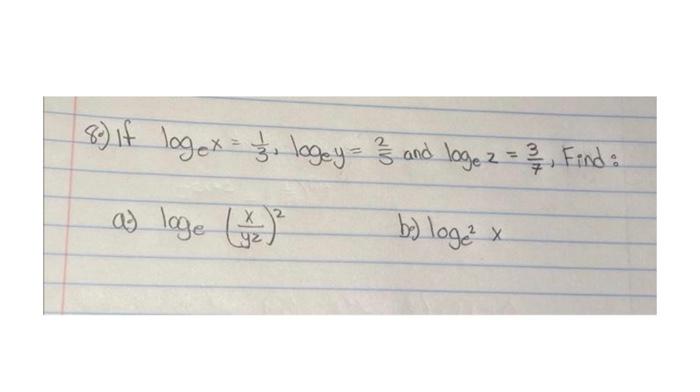 8.) If logₑx = 1/3, logₑy = 2/5 and logₑz = 3/7, Find:
a.) logₑ (x/yz)² b.) logₑ² x